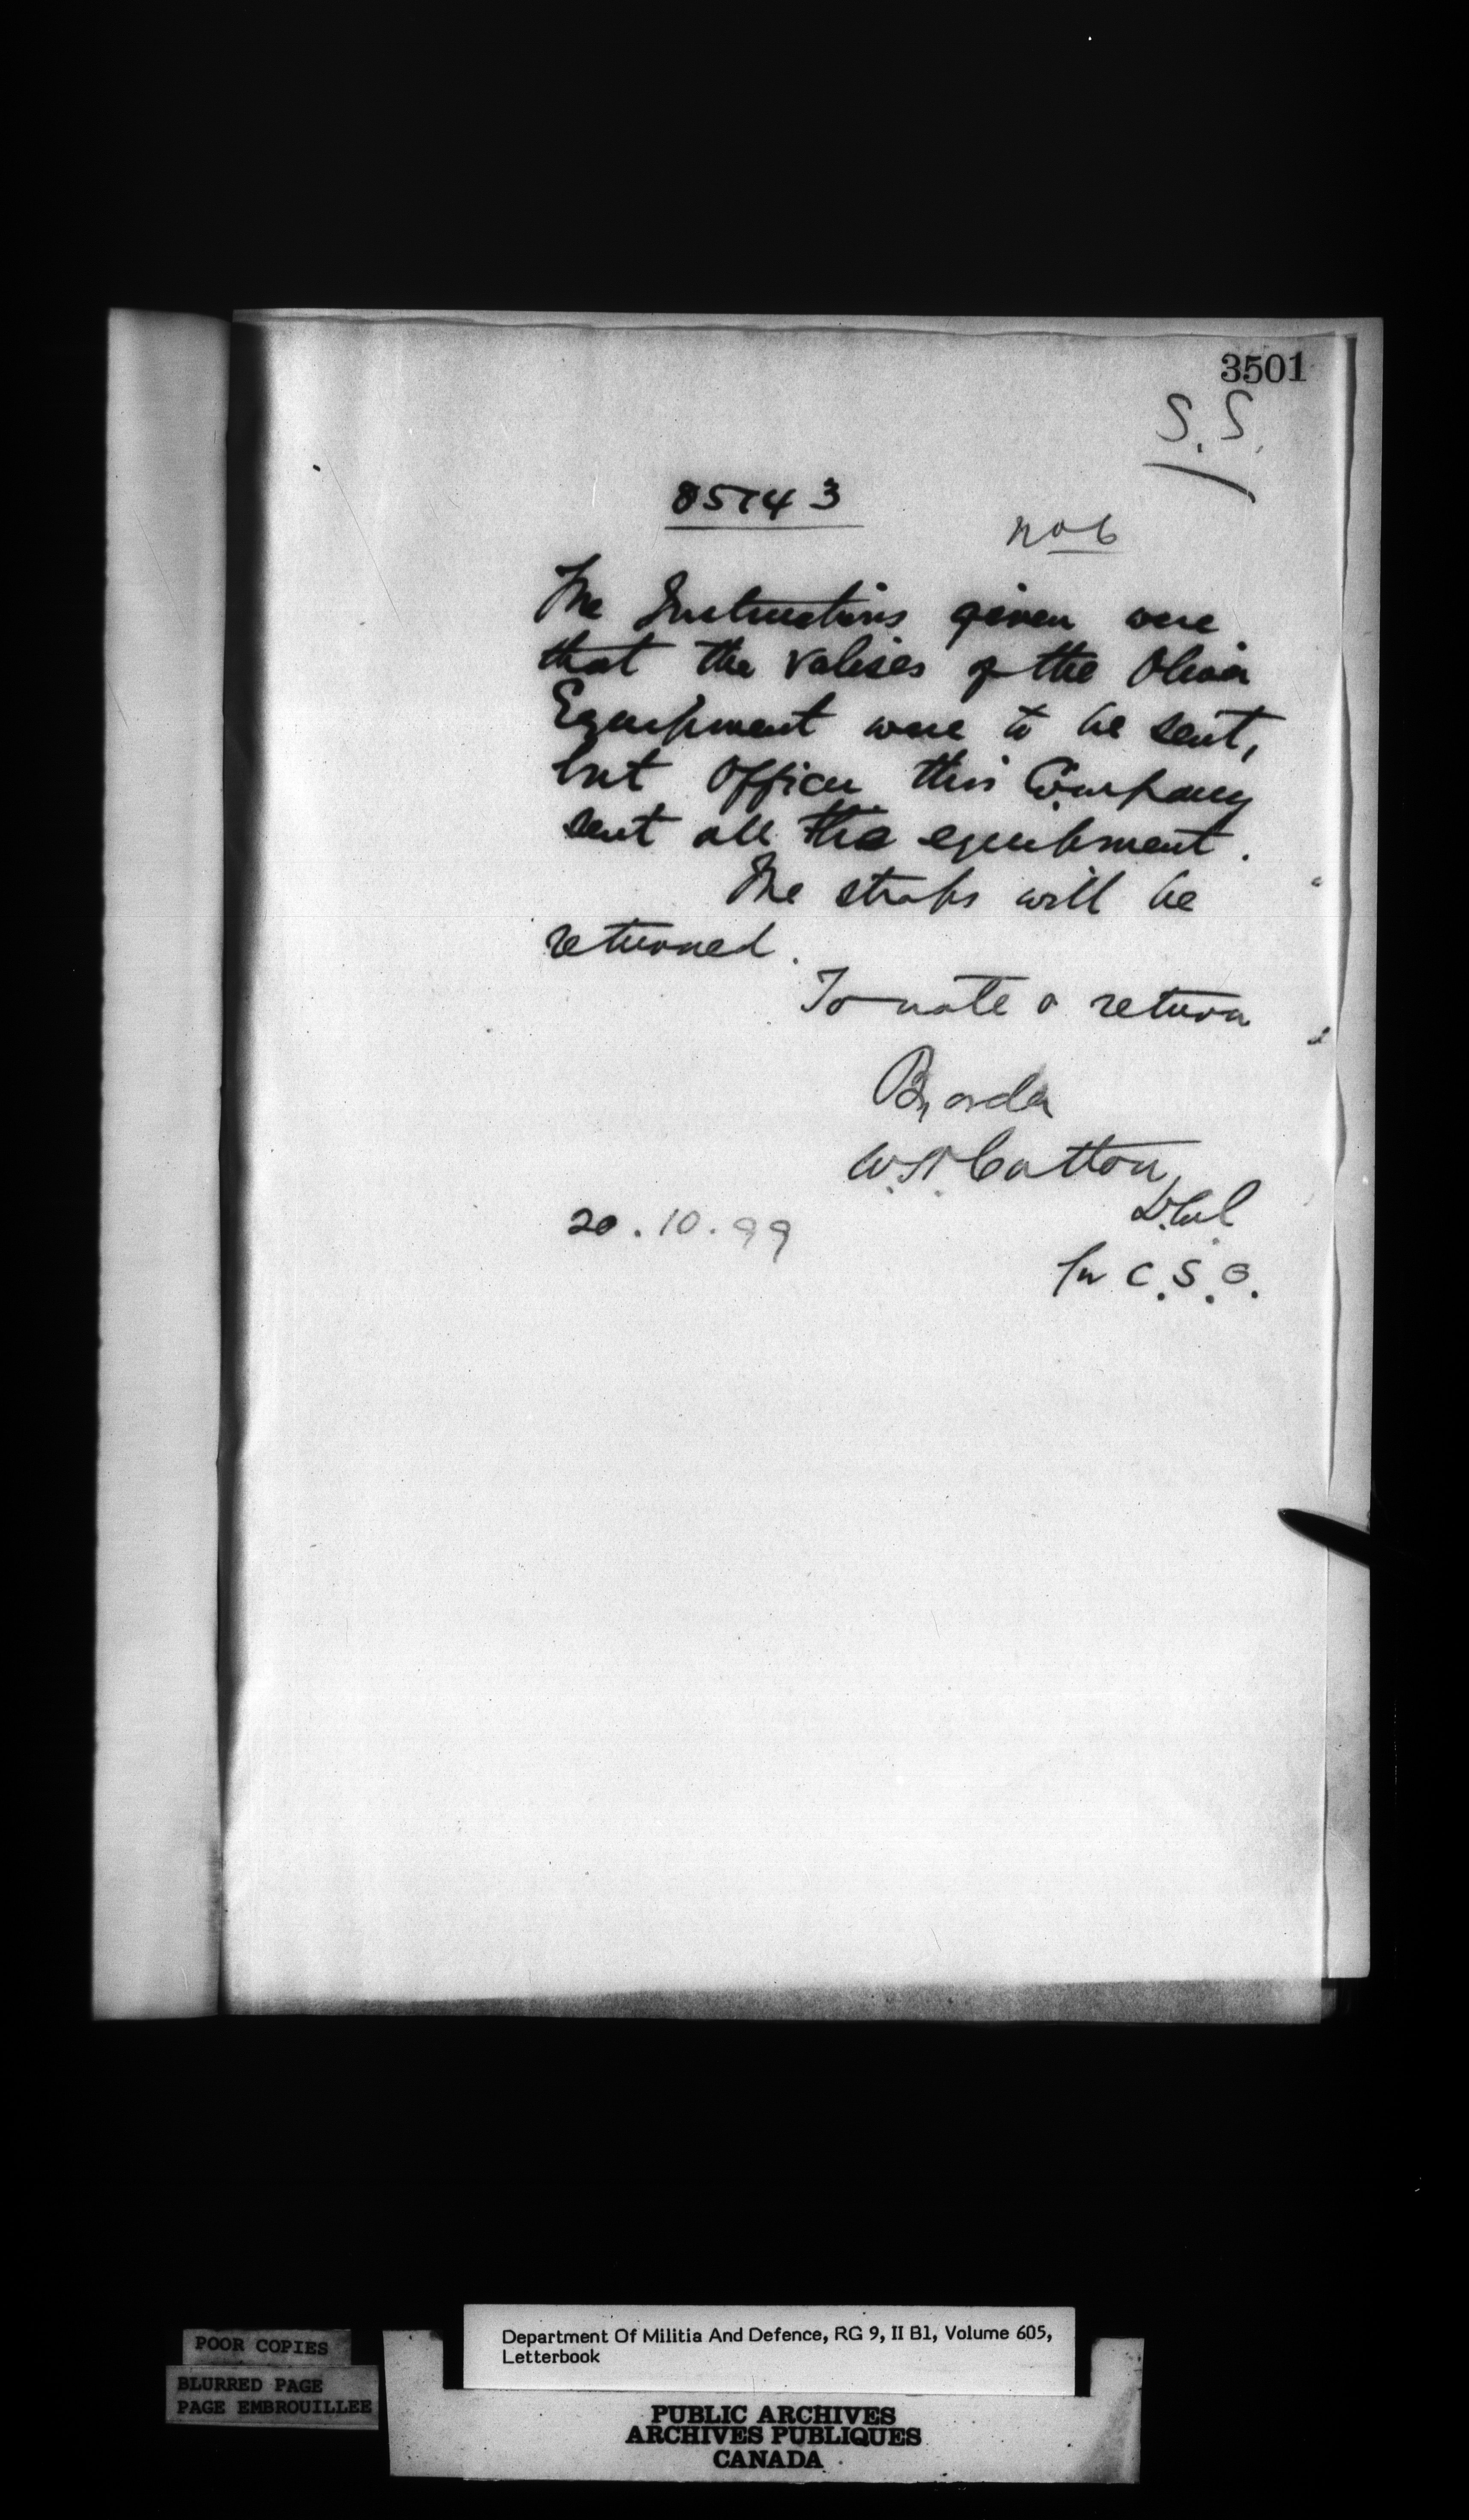 3501
S.S.
85743
No 6
The Instructions given were
that the valises of the Oliver
Equipment were to be sent,
but Officer this Company
sent all the equipment.
The straps will be
returned.
To note & return
By order
W. H. Cotton
Lt. Col
for C.S.O.
20.10.99
Department Of Militia And Defence, RG 9, II B1, Volume 605,
Letterbook
POOR COPIES
BLURRED PAGE
PAGE EMBROUILLEE
PUBLIC ARCHIVES
ARCHIVES PUBLIQUES
CANADA